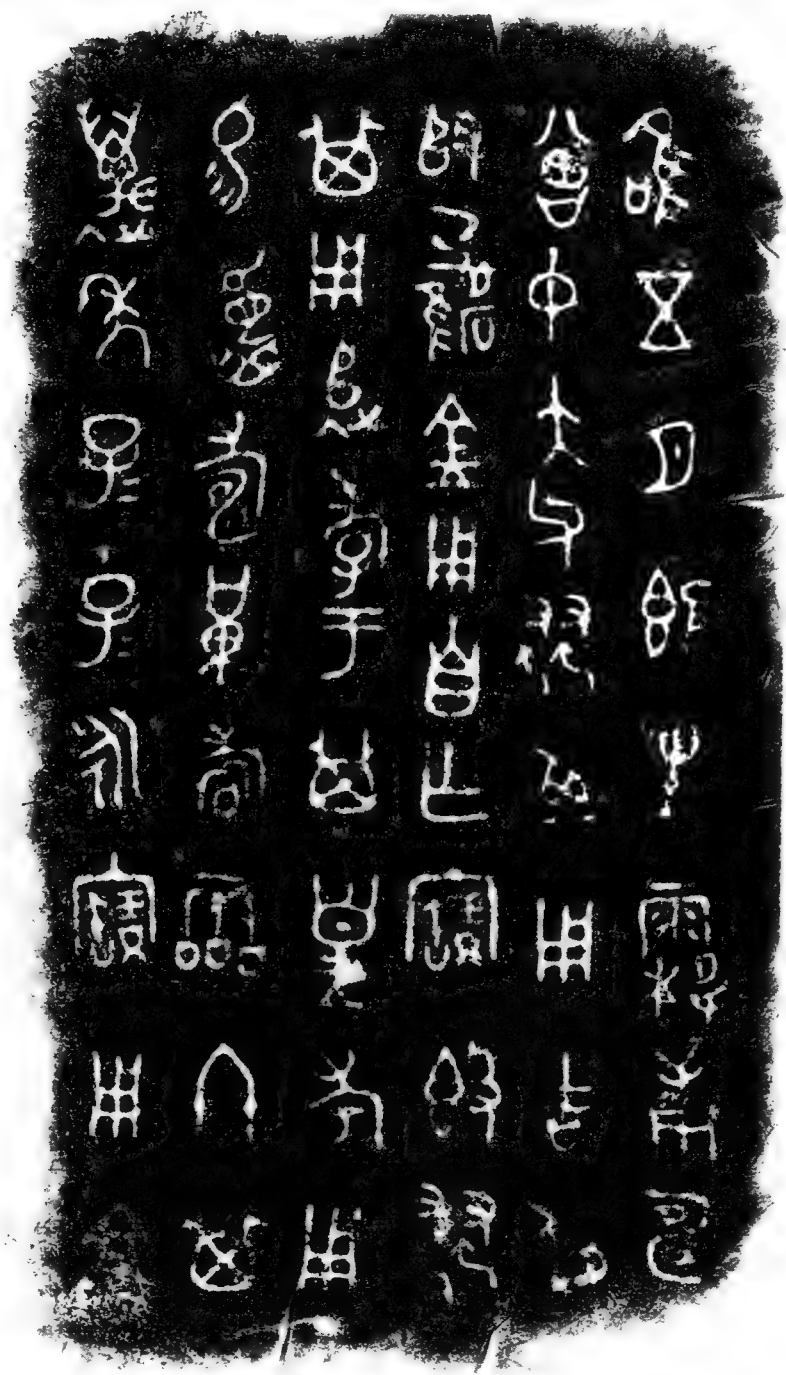 唯五月既生霸庚申
曾中大父𧊒廼用吉攸
金用自乍寶簋𧊒
其用追孝于其皇考用
易眉壽黃耇霝冬其
萬年子子孫孫永寶用享